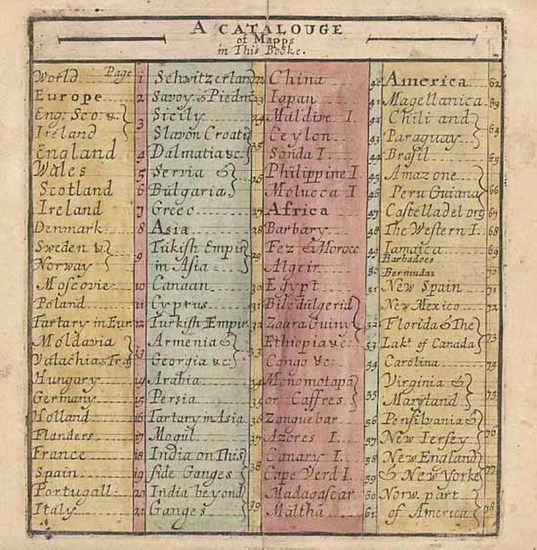 A CATALOUGE
of Mapps
in This Booke.
World Page 1
Europe 2
Eng: Sco: &
Ireland 3
England 4
Wales 5
Scotland 6
Ireland 7
Denmark 8
Sweden &
Norway 9
Moscovie 10
Poland 11
Tartary in Eur 12
Moldavia
Valachia & Tra 13
Hungary 14
Germany 15
Holland 16
Flanders 17
France 18
Spain 19
Portugall 20
Italy 21
Schwitzerland 22
Savoy & Piedm 23
Sicily 24
Slavon Croati
Dalmatia &c. 25
Servia &
Bulgaria 26
Greec 27
Asia 28
Tukish Empir
in Asia 29
Canaan 30
Cyprus 31
Turkish Empir 32
Armenia &
Georgia &c: 33
Arabia 34
Persia 35
Tartary in Asia 36
Mogul 37
India on This
side Ganges 38
India beyond
Ganges 39
China 40
Iapan 41
Maldive I. 42
Ceylon 43
Sonda I. 44
Philippine I 45
Molucca I 46
Africa 47
Barbary 48
Fez & Morocc 49
Algeir 50
Egypt 51
Biledulgerid
Zaara Guiny 52
Ethiopia &c 53
Congo &c: 54
Monomotapa
or Caffres 55
Zanguebar 56
Azores I. 57
Canary I. 58
Cape Verd I. 59
Madagascar 60
Maltha 61
America 62
Magellanica 63
Chili and
Paraguay 64
Brasil 65
Amazone
Peru Guiana 66
Castelladelor 67
The Western I. 68
Jamaica 69
Barbadoes
Bermudas 70
New Spain 71
New Mexico 72
Florida & The
Lak: of Canada 73
Carolina 74
Virginia &
Maryland 75
Pensilvania &
New Iersey 76
New England
& New Yorke 77
Norw. part
of America 78